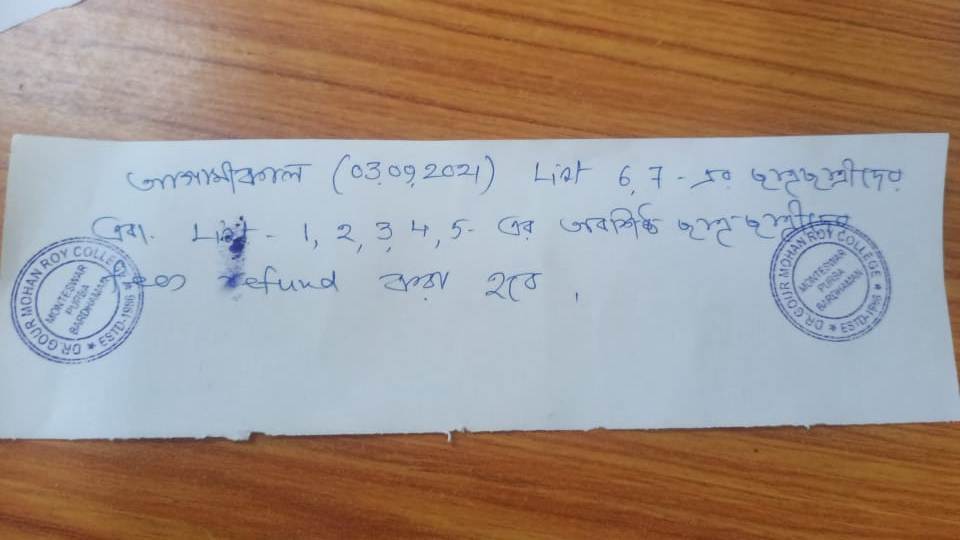 আগামীকাল (03.09.2021) List 6,7 - এর ছাত্রছাত্রীদের
এবং List - 1, 2, 3, 4, 5 - এর অবশিষ্ট ছাত্র-ছাত্রীদের
fees refund করা হবে.
DR. GOUR MOHAN ROY COLLEGE ★ ESTD-1986 ★
MONTESWAR
PURBA
BARDHAMAN
DR. GOUR MOHAN ROY COLLEGE ★ ESTD-1986 ★
MONTESWAR
PURBA
BARDHAMAN